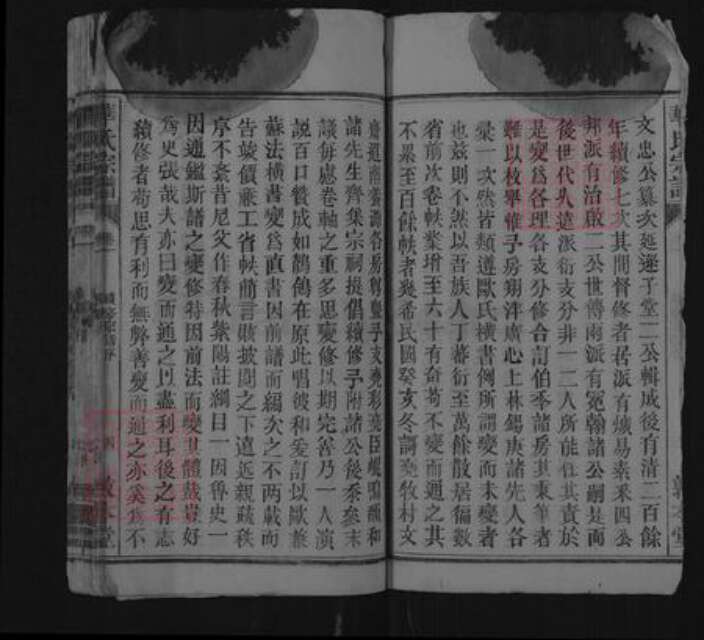 文忠公纂次延遜子堂二公輯成後有清二百餘
年續修七次其間督修者居派有爔易素釆四公
邦派有治啟二公世傳南派有冕翰諸公嗣是而
後世代久遠派衍支分非一二人所能任其責於
是變爲各理各支分修合訂伯季諸房其秉筆者
難以枚舉惟予房翔洋廣心上林錫庚諸先人各
彙一次然皆類遵歐氏橫書例所謂變而未變者
也茲則不然以吾族人丁蕃衍至萬餘散居徧數
省前次卷帙業增至六十有奇苟不變而通之其
不累至百餘帙者幾希民國癸亥冬詞堯牧村文
諸先生齊集宗祠提倡續修予附諸公後忝參末
議毎慮卷軸之重多思變修以期完善乃一人演
說百口贊成如鶺鴒在原此唱彼和爰訂以歐兼
蘇法橫書變爲直書因前譜而編次之不两載而
告竣價廉工省帙簡言賅披閱之下遠近親疎秩
序不紊昔尼父作春秋紫陽註綱目一因魯史一
因通鑑斯譜之變修特因前法而變其體裁豈好
爲史張哉夫亦曰變而通之以盡利耳後之有志
續修者苟思有利而無弊善變而通之亦奚爲不